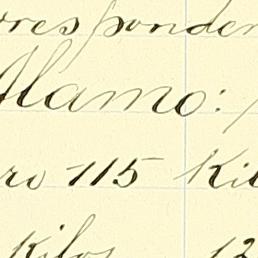 rresponden
Alamo:
ro 115 Kil
Kilos 12